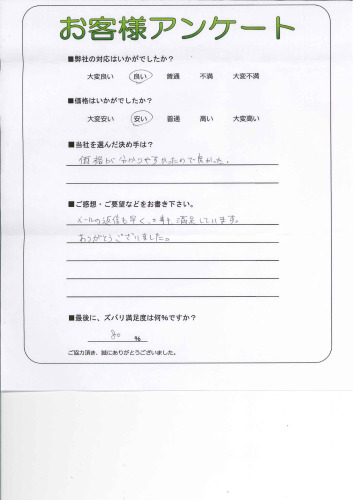 お客様アンケート
■弊社の対応はいかがでしたか?
大変良い 良い 普通 不満 大変不満
■価格はいかがでしたか?
大変安い 安い 普通 高い 大変高い
■当社を選んだ決め手は?
価格が分かりやすかったので良かった。
■ご感想・ご要望などをお書き下さい。
メールの返信も早く、満足しています。
ありがとうございました。
■最後に、ズバリ満足度は何%ですか?
80 %
ご協力頂き、誠にありがとうございました。